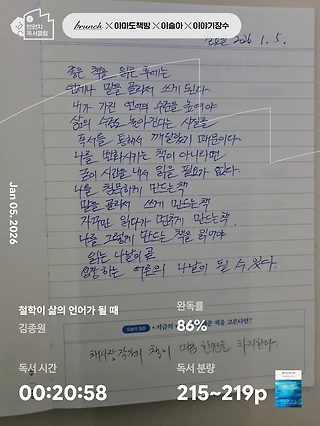 브런치
독서클럽
brunch × 아마도책방 × 이슬아 × 이야기장수
월요일 2026. 1. 5.
좋은 책을 읽은 후에는
언제나 말을 골라서 쓰게 된다.
내가 가진 언어의 수준을 높여야
삶의 수준도 높아진다는 사실을
독서를 통해서 깨달았기 때문이다.
나를 변화시키는 책이 아니라면
굳이 시간을 내서 읽을 필요가 없다.
나를 침묵하게 만드는 책
말을 골라서 쓰게 만드는 책
자꾸만 읽다가 멈추게 만드는 책.
나를 그렇게 만드는 책을 읽어야
읽는 나날이 곧
성장하는 어른의 나날이 될 수 있다.
Jan 05, 2026
철학이 삶의 언어가 될 때
김종원
완독률
86%
오늘의 질문
지금의
책을 고른다면?
책이 마음 한켠을 차지한다.
독서 시간
00:20:58
독서 분량
215~219p